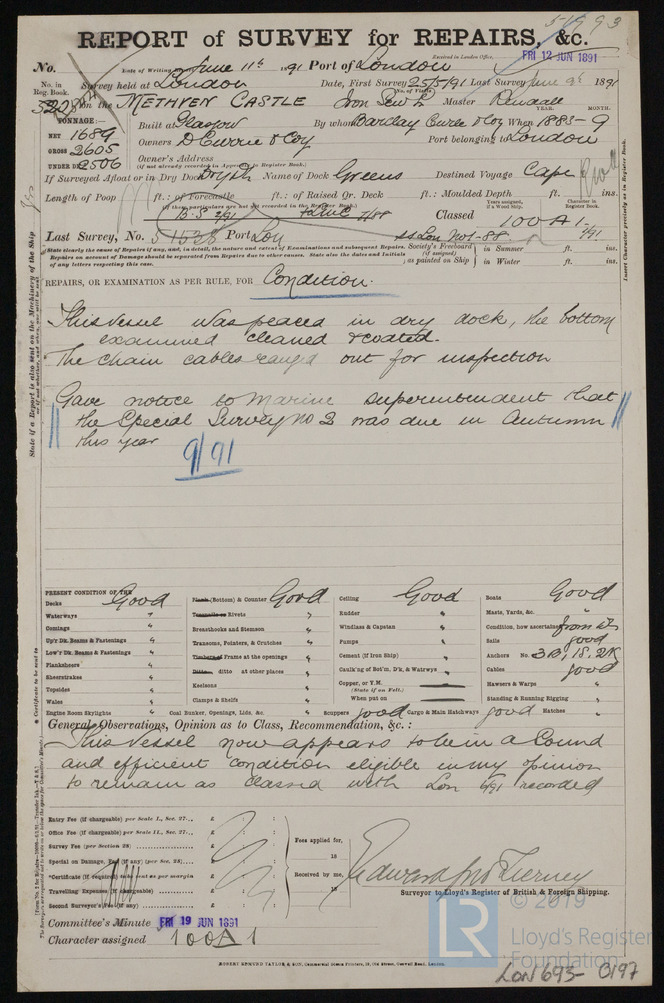 5-1993
REPORT of SURVEY for REPAIRS, &c.
Received in London Office, FRI 12 JUN 1891
No. Date of Writing Report June 11th 1891 Port of London
No. in Reg. Book. Survey held at London Date, First Survey 25/5/91 Last Survey June 9th 1891
528 on the METHVEN CASTLE Iron Sew Sr Master Rendall
TONNAGE:— YEAR. MONTH.
NET 1689 Built at Glasgow By whom Barclay Curle & Coy When 1883-9
GROSS 2605 Owners D Currie & Coy Port belonging to London
UNDER DK 2506 Owner's Address
(if not already recorded in Appendix to Register Book.)
If Surveyed Afloat or in Dry Dock Dry dk Name of Dock Greens Destined Voyage Cape
Length of Poop ft.: of Forecastle ft.: of Raised Qr. Deck ft.: Moulded Depth ft. ins.
(If these particulars are not yet recorded in the Register Book.) Years assigned, if a Wood Ship. Character in Register Book.
B.S 2/91 7/88 Classed 100 A 1
Last Survey, No. 51538 Port Lon ss Lon No1-88 2/91
State clearly the cause of Repairs if any, and, in detail, the nature and extent of Examinations and subsequent Repairs. Society's Freeboard (if assigned) in Summer ft. ins.
Repairs on account of Damage should be separated from Repairs due to other causes. State also the dates and Initials of any letters respecting this case. as painted on Ship in Winter ft. ins.
REPAIRS, OR EXAMINATION AS PER RULE, FOR Condition.
This vessel was placed in dry dock, the bottom
examined cleaned & coated.
The chain cables rangd out for inspection
Gave notice to Marine superintendent that
the Special Survey no 2 was due in Autumn
this year
9/91
PRESENT CONDITION OF THE
Decks Good Plank (Bottom) & Counter Good Ceiling Good Boats Good
Waterways " Treenails or Rivets " Rudder " Masts, Yards, &c. "
Comings " Breasthooks and Stemson " Windlass & Capstan " Condition, how ascertained from dk
Up'r Dk. Beams & Fastenings " Transoms, Pointers, & Crutches " Pumps " Sails good
Low'r Dk. Beams & Fastenings " Timbers of Frame at the openings " Cement (If Iron Ship) " Anchors No. 3B, 1S, 2K
Planksheers " Ditto ditto at other places " Caulk'ng of Bot'm, D'k, & Watrwys " Cables good
Sheerstrakes " Keelsons " Copper, or Y.M. — Hawsers & Warps "
Topsides " Clamps & Shelfs " (State if on Felt.) — Standing & Running Rigging "
Wales " When put on —
Engine Room Skylights " Coal Bunker, Openings, Lids, &c. " Scuppers good Cargo & Main Hatchways good Hatches "
General Observations, Opinion as to Class, Recommendation, &c.:
This vessel now appears to be in a sound
and efficient condition eligible in my opinion
to remain as classed with Lon 6/91 recorded
Entry Fee (if chargeable) per Scale I., Sec. 27.., £ : :
Office Fee (if chargeable) per Scale II., Sec. 27.., £ : : Fees applied for,
Survey Fee (per Section 28) £ : : 18
Special on Damage, Fee (if any) (per Sec. 28).... £ : : Received by me,
*Certificate (if required) to be sent as per margin
Travelling Expenses, (if chargeable) £ : : 18
Second Surveyor's Fee (if any) £ : :
Edward Jno Tierney
Surveyor to Lloyd's Register of British & Foreign Shipping.
Committee's Minute FRI 19 JUN 1891
Character assigned 100A1
ROBERT EDMUND TAYLOR & SON, Commercial Steam Printers, 19, Old Street, Goswell Road, London.
© 2019
LR Lloyd's Register Foundation
LON 693-0197